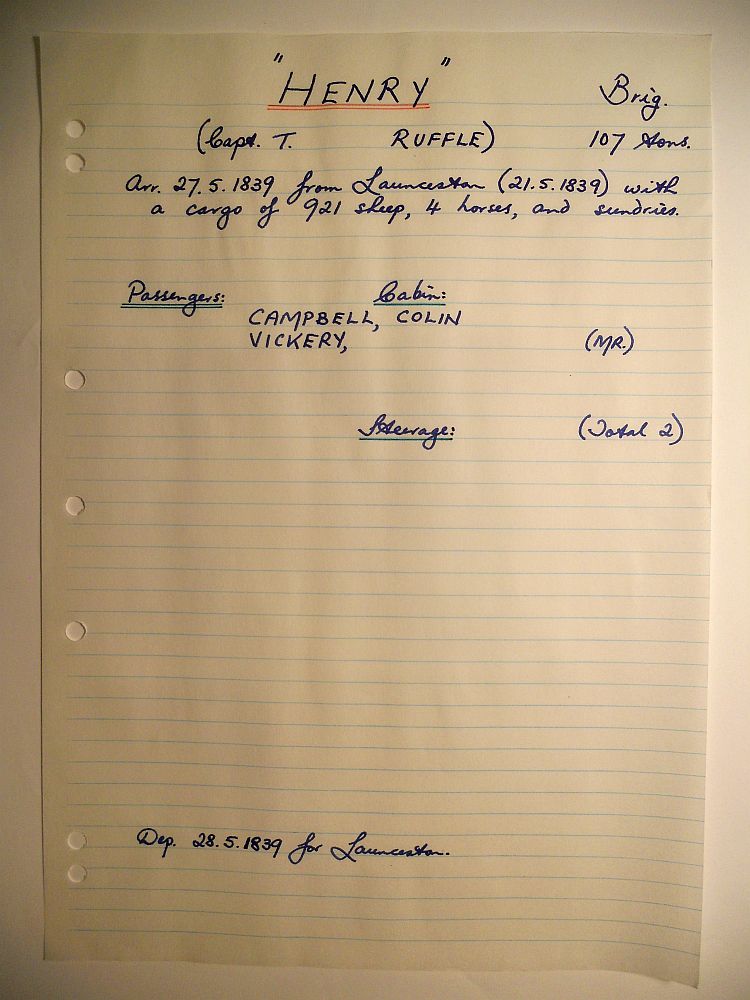 "HENRY" Brig.
(Capt. T. RUFFLE) 107 tons.
Arr. 27.5.1839 from Launceston (21.5.1839) with
a cargo of 921 sheep, 4 horses, and sundries.
Passengers: Cabin:
CAMPBELL, COLIN
VICKERY, (MR.)
Steerage: (Total 2)
Dep. 28.5.1839 for Launceston.